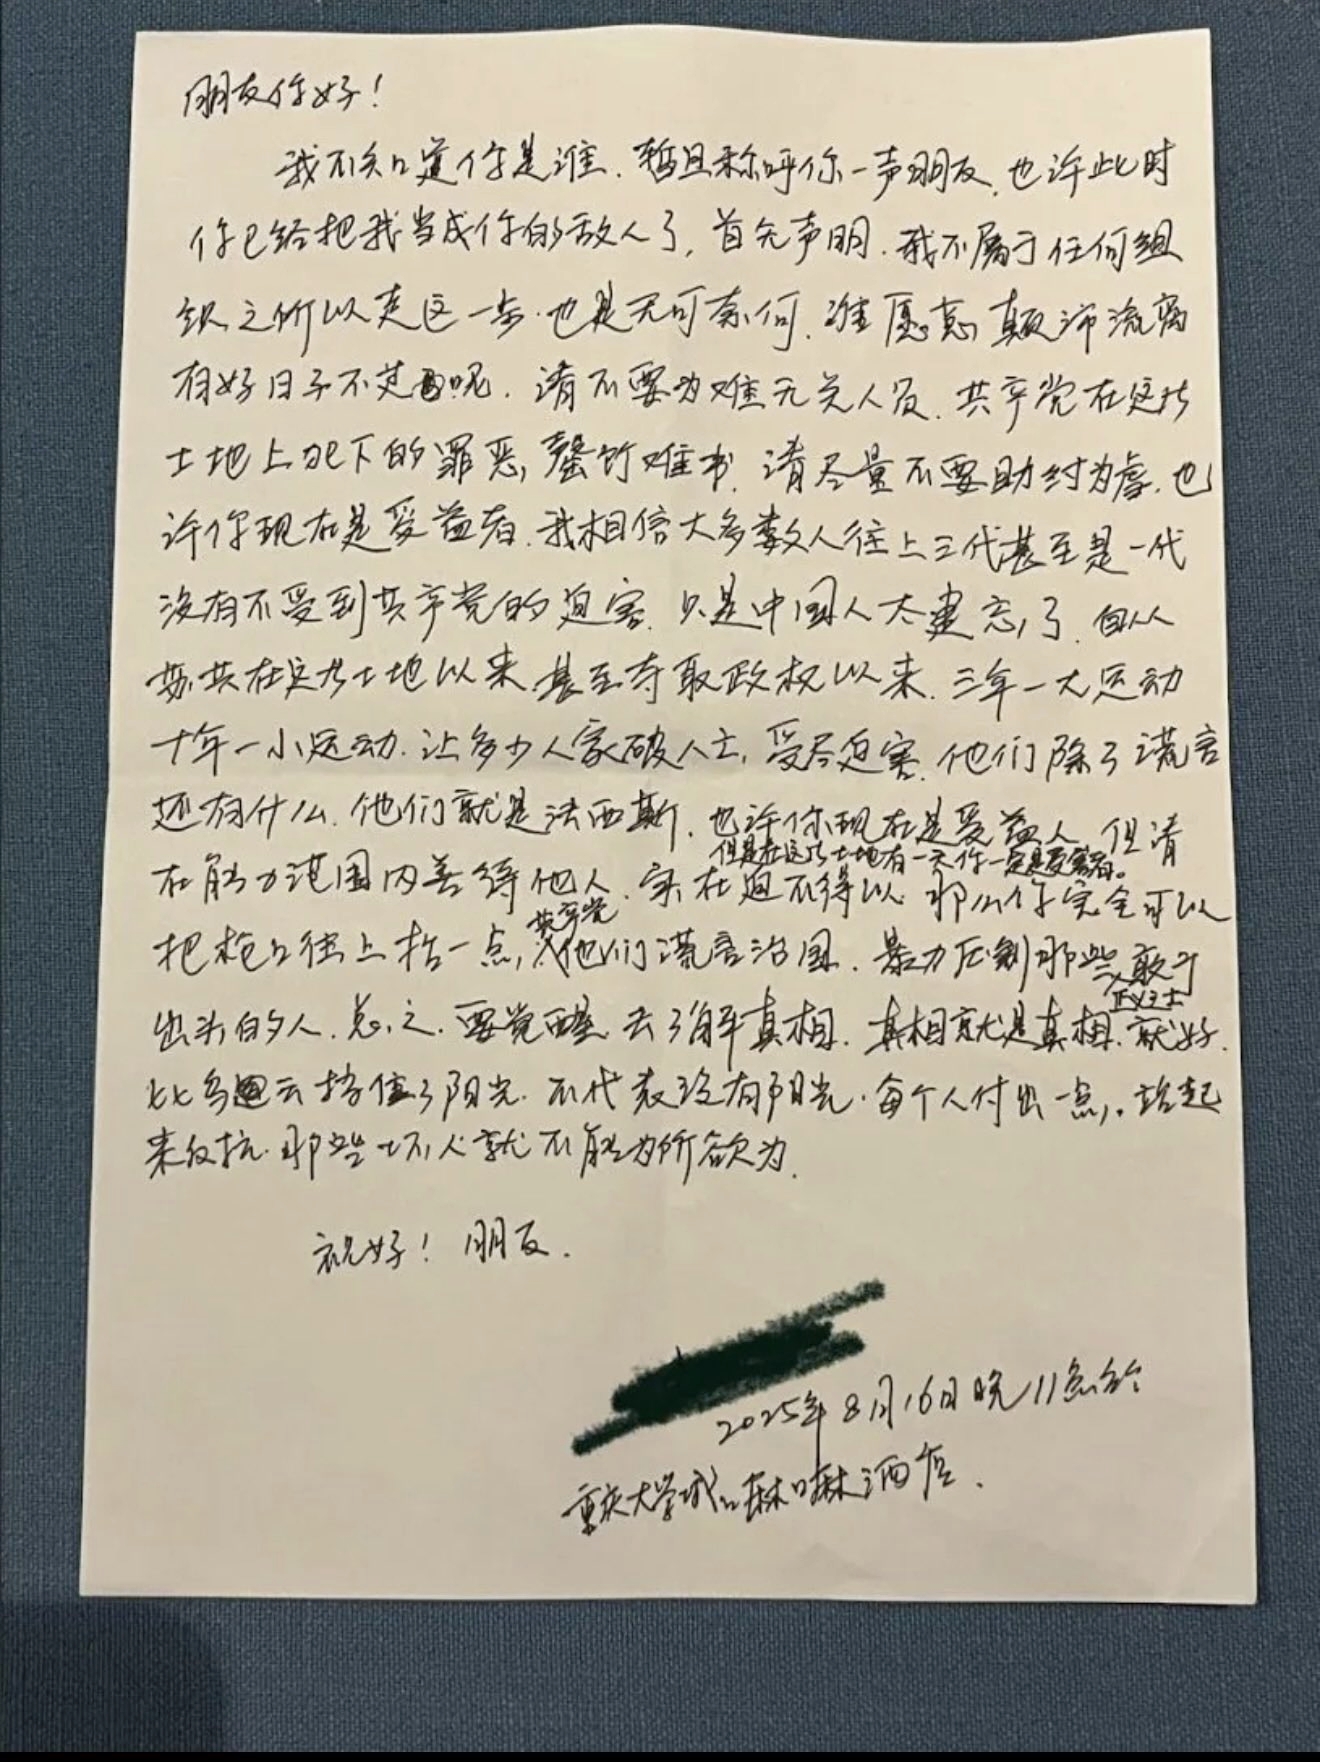 朋友你好！
我不知道你是谁.暂且称呼你一声朋友.也许此时
你已给把我当成你的敌人了,首先声明.我不属于任何组
织之所以走这一步.也是无可奈何.谁愿意,颠沛流离
有好日子不过呢.请不要为难无关人员.共产党在这片
土地上犯下的罪恶,罄竹难书.请尽量不要助纣为虐.也
许你现在是受益者.我相信大多数人往上三代甚至是一代
没有不受到共产党的迫害.只是中国人太健忘,了.自从
苏共在这片土地以来.甚至夺取政权以来.三年一大运动
十年一小运动.让多少人家破人亡,受尽迫害.他们除了谎言
还有什么.他们就是法西斯.也许你现在是受益人,但请
但是在这片土地有一天你一定是受害者。
在能力范围内善待他人.实在迫不得以.那么你完全可以
共产党
把枪口往上抬一点,他们谎言治国.暴力压制那些敢于
正义之士
出头的人.总之.要觉醒.去了解真相.真相就是真相.就好
比乌云挡住了阳光.不代表没有阳光.每个人付出一点,.站起
来反抗.那些坏人就不能为所欲为.
祝好！朋友.
2025年8月16日晚11点
重庆大学城口麻口麻酒店.